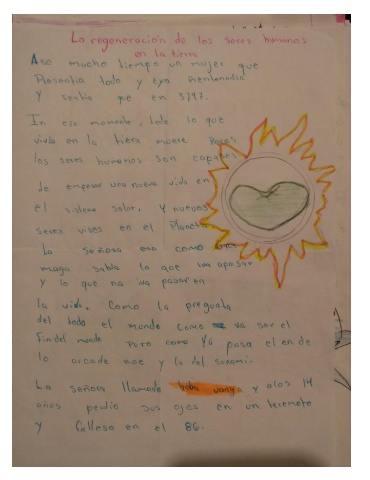 La regeneración de los seres humanos
en la tierra
Ase mucho tiempo un mujer que
todo y era
y sentia que en 3797.
En ese momento, todo lo que
vivia en la tierra muere
los seres humanos son capases
de empesar una nueva vida en
el sistema solar, y nuevos
seres vivos en el Planeta
La Señora era como
maga sabia lo que iva apasar
y lo que no iva pasar en
la vida. Como la pregunta
del todo el mundo como va ser el
fin del mundo Pero como ya pasa el en de
lo arcade noe y lo del sunami.
La señora llamada baba vanga y alos 14
años perdio sus ojos en un teremoto
y falleso en el 86.